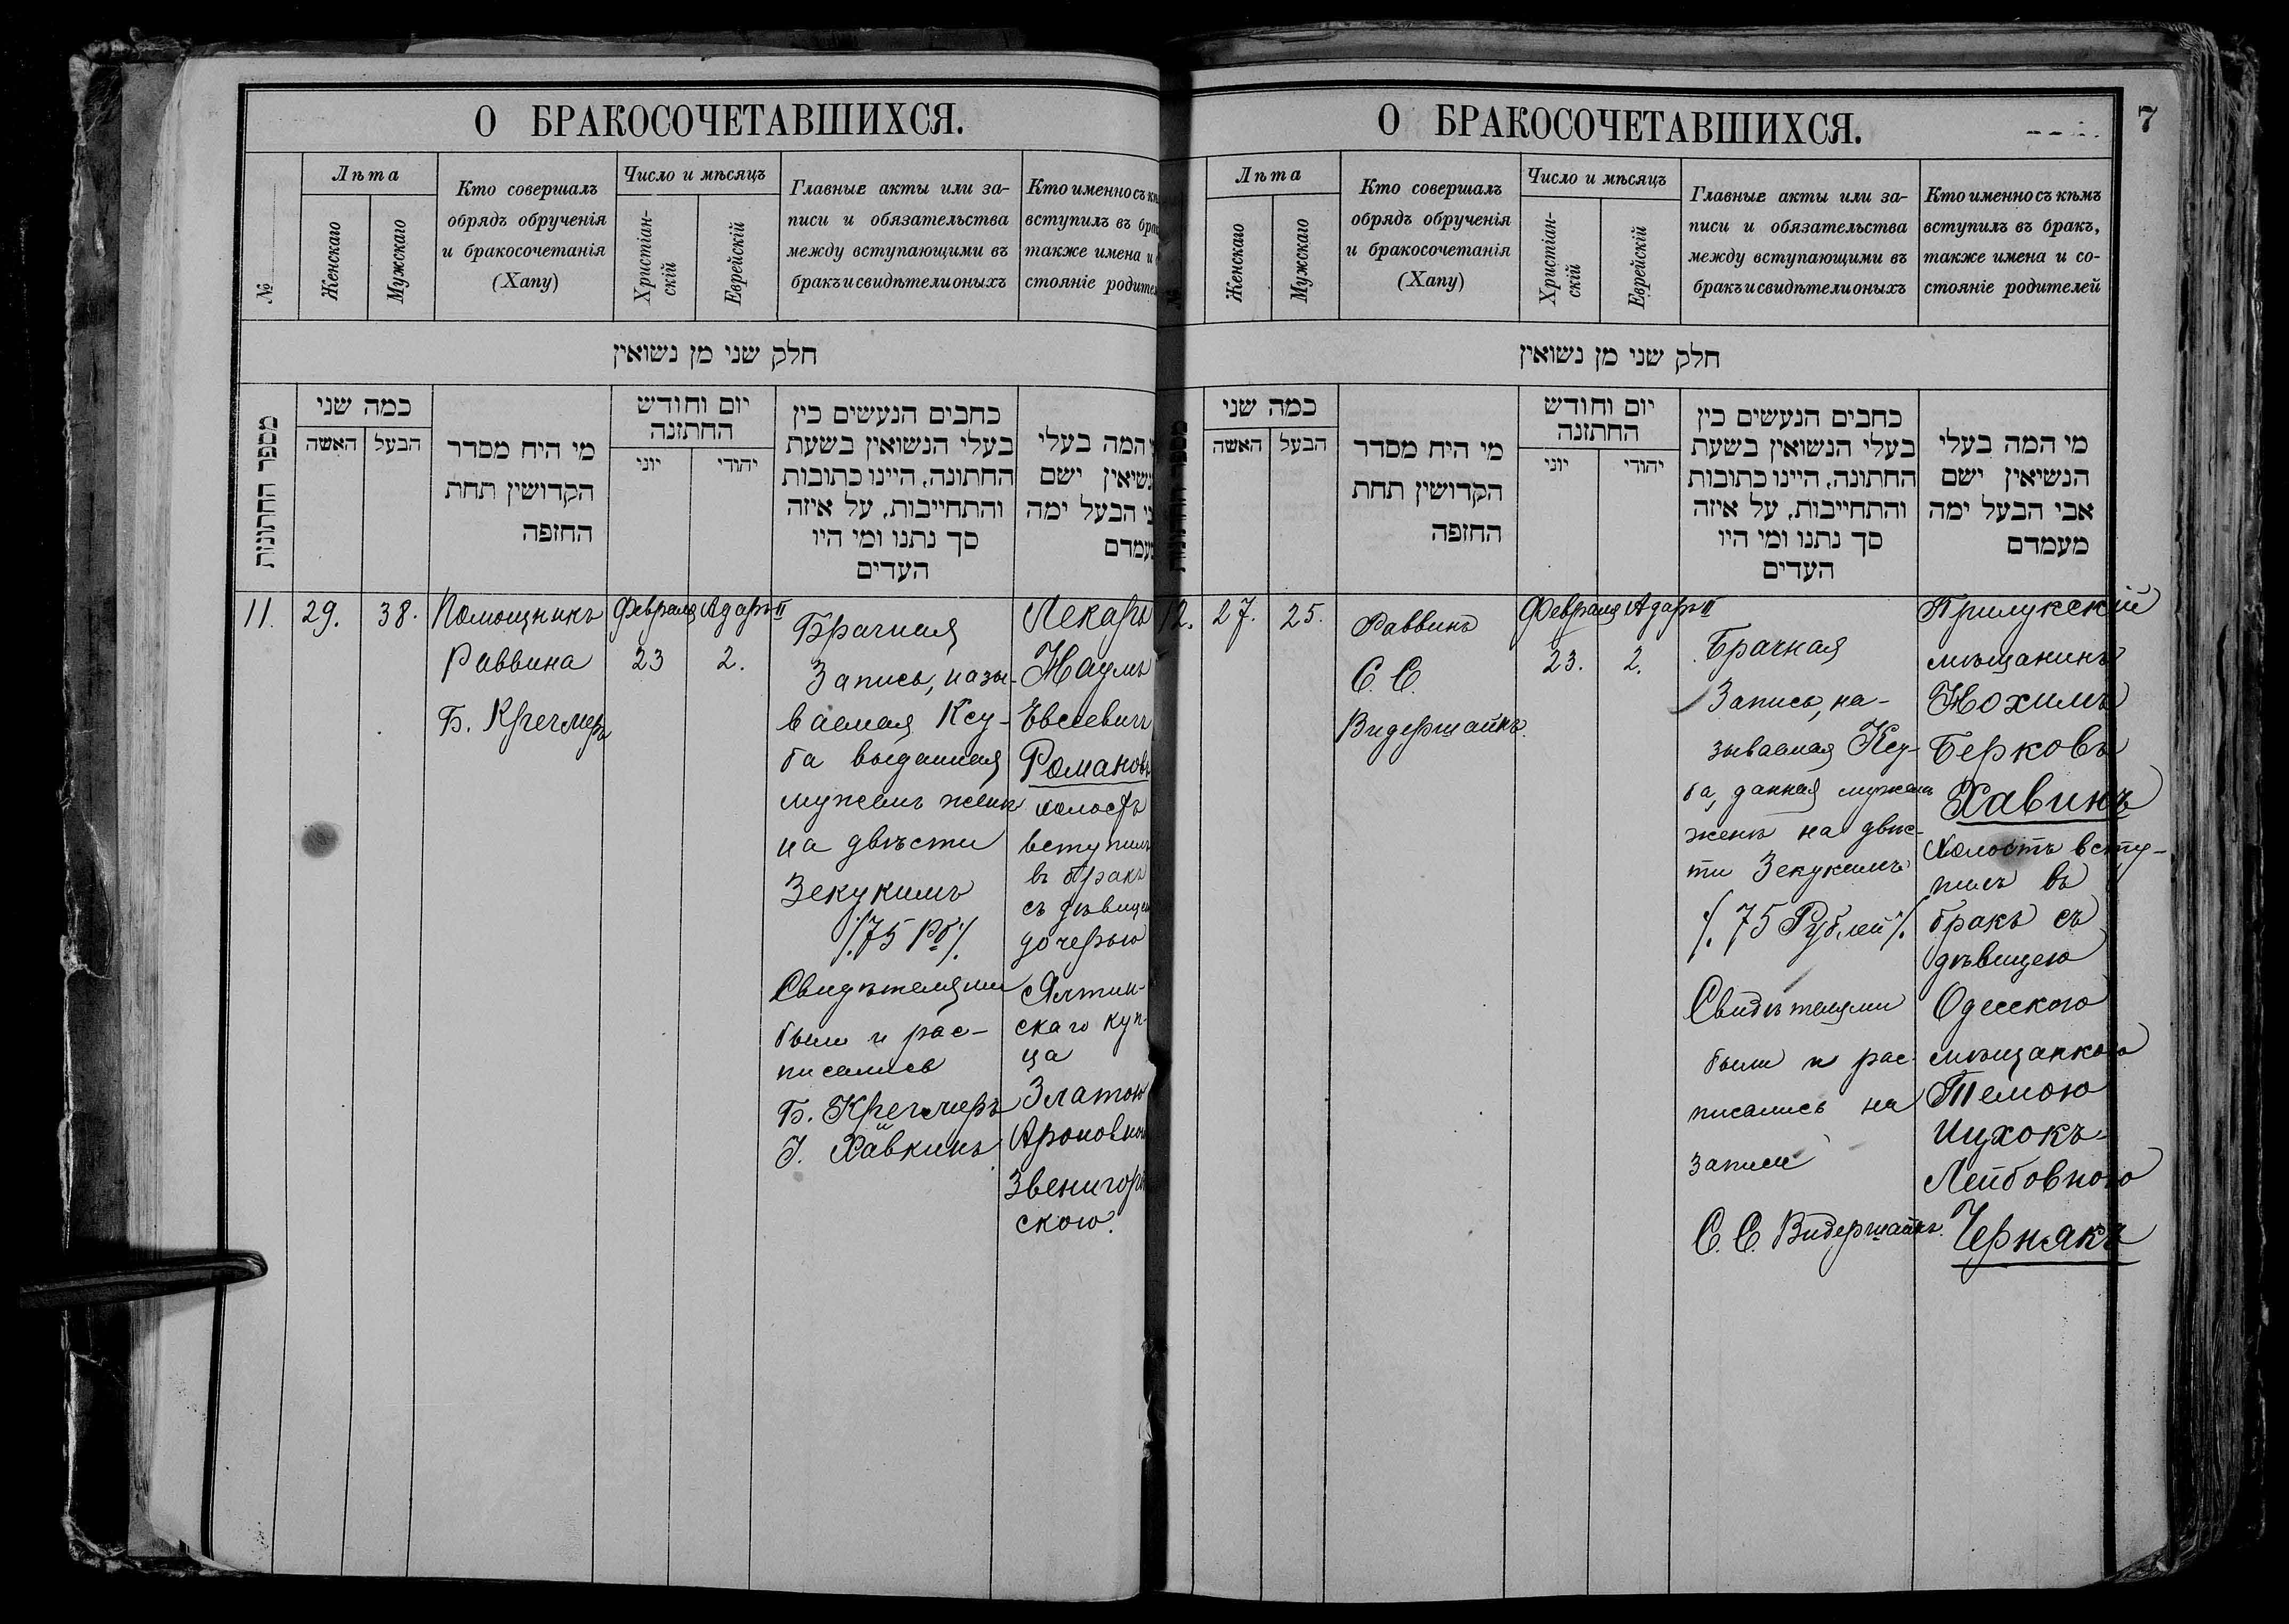 О БРАКОСОЧЕТАВШИХСЯ.
№
Лѣта
Женскаго
Мужскаго
Кто совершалъ
обрядъ обрученія
и бракосочетанія
(Хапу)
Число и мѣсяцъ
Христіан-
скій
Еврейскій
Главные акты или за-
писи и обязательства
между вступающими въ
бракъ и свидѣтели оныхъ
Кто именно съ
вступилъ въ
также имена и
стояніе
חלק שני מן נשואין
מספר החתונות
כמה שני
האשה
הבעל
מי היח מסדר
הקדושין תחת
החזפה
יום וחודש
החתזנה
יוני
יהודי
כחבים הנעשים כין
בעלי הנשואין בשעת
החתונה, היינו כתובות
והתחייבות, על איזה
סך נתנו ומי היו
העדים
המה בעלי
ישם
הבעל ימה
11.
29.
38.
Помощникъ
Раввина
Б. Кречмеръ
Февраля
23
Адаръ II
2.
Брачная
Запись, назы-
ваемая Ксу-
ба выданная
мужемъ женѣ
на двѣсти
Зекукимъ
/.75 Рб/.
Свидѣтелями
были и рас-
писались
Б. Кречмеръ
І. Хавкинъ
Лекарь
Наумъ
Евсеевичъ
Романовъ
холостъ
вступилъ
въ бракъ
съ дѣвицею
дочерью
Ялтин-
скаго куп-
ца
Златою
Ароновною
Звенигород
скою.
О БРАКОСОЧЕТАВШИХСЯ.
7
Лѣта
Женскаго
Мужскаго
Кто совершалъ
обрядъ обрученія
и бракосочетанія
(Хапу)
Число и мѣсяцъ
Христіан-
скій
Еврейскій
Главные акты или за-
писи и обязательства
между вступающими въ
бракъ и свидѣтели оныхъ
Кто именно съ кѣмъ
вступилъ въ бракъ,
также имена и со-
стояніе родителей
חלק שני מן נשואין
כמה שני
האשה
הבעל
מי היח מסדר
הקדושין תחת
החזפה
יום וחודש
החתזנה
יוני
יהודי
כחבים הנעשים כין
בעלי הנשואין בשעת
החתונה, היינו כתובות
והתחייבות, על איזה
סך נתנו ומי היו
העדים
מי המה בעלי
הנשיאין ישם
אבי הבעל ימה
מעמדם
12.
27.
25.
Раввинъ
С. С.
Видершайнъ.
Февраля
23.
Адаръ II
2.
Брачная
Запись, на-
зываемая Ксу-
ба, данная мужемъ
женѣ на двѣс-
ти Зекукимъ
/. 75 Рублей /.
Свидѣтелями
были и рас-
писались на
записи
С. С. Видершайнъ.
Прилукскій
мѣщанинъ
Нохимъ
Берковъ
Хавинъ
Холостъ всту-
пилъ въ
бракъ съ
дѣвицею
Одесскою
мѣщанкою
Темою
Ицхокъ-
Лейбовною
Чернякъ